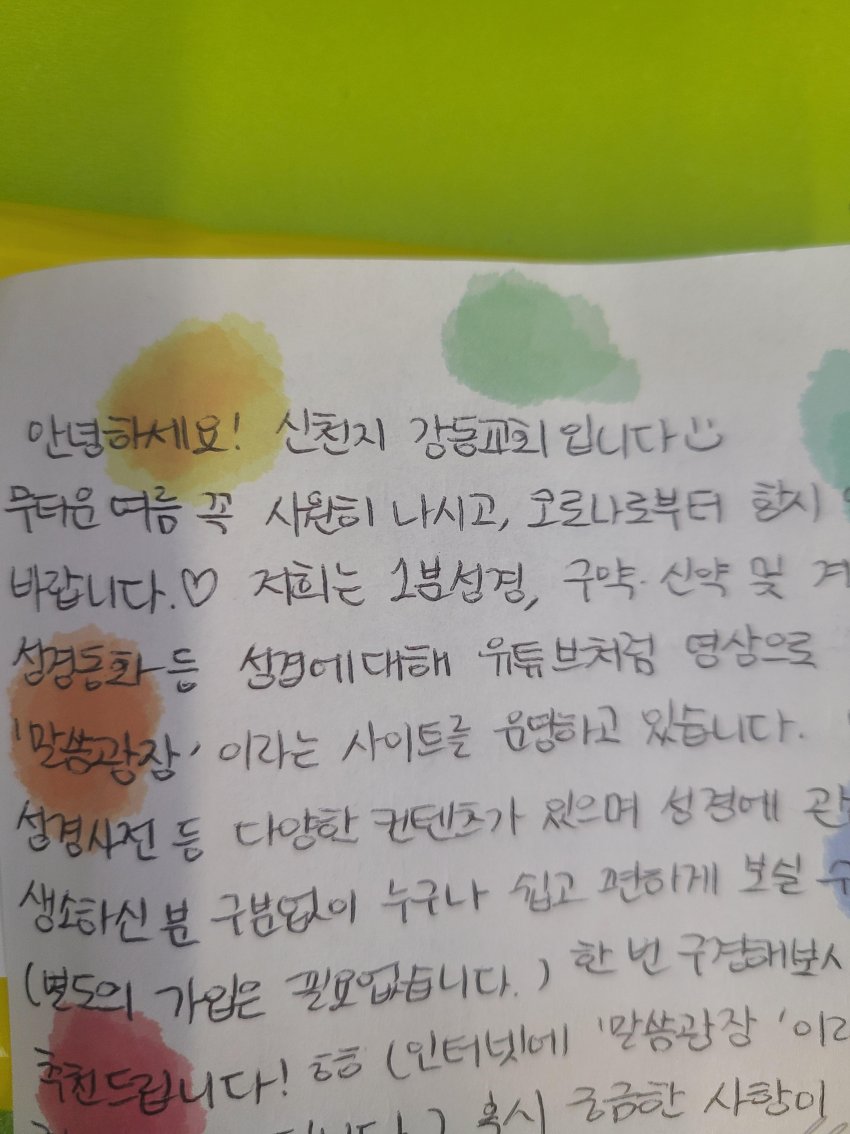 안녕하세요! 신천지 강동교회입니다
무더운 여름 꼭 시원히 나시고, 코로나로부터 항시
바랍니다.♡ 저희는 1분성경, 구약·신약 및 계
성경동화 등 성경에 대해 유튜브처럼 영상으로
'말씀광장' 이라는 사이트를 운영하고 있습니다.
성경사전 등 다양한 컨텐츠가 있으며 성경에 관
생소하신 분 구분없이 누구나 쉽고 편하게 보실 수
(별도의 가입은 필요없습니다.) 한 번 구경해보시
추천드립니다! ㅎㅎ (인터넷에 '말씀광장' 이라
혹시 궁금한 사항이